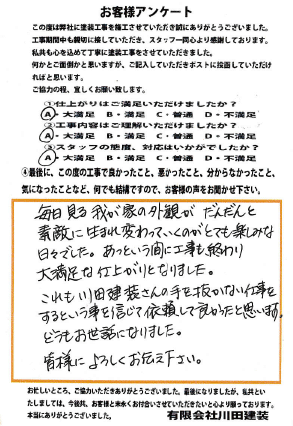 お客様アンケート
この度は弊社に塗装工事を施工させていただき誠にありがとうございました。
工事期間中も親切に接していただき、スタッフ一同心より感謝しております。
私共も心を込めて丁寧に塗装工事をさせていただきました。
何かとご面倒かと思いますが、ご記入していただきポストに投函していただければと思います。
ご協力の程、宜しくお願い致します。
①仕上がりはご満足いただけましたか?
A・大満足 B・満足 C・普通 D・不満足
②工事内容はご理解いただけましたか?
A・大満足 B・満足 C・普通 D・不満足
③スタッフの態度、対応はいかがでしたか?
A・大満足 B・満足 C・普通 D・不満足
④最後に、この度の工事で良かったこと、悪かったこと、分からなかったこと、
気になったことなど、何でも結構ですので、お客様の声をお聞かせ下さい。
毎日見る我が家の外観がだんだんと
素敵に生まれ変わっていくのがとても楽しみな
日々でした。あっという間に工事も終わり
大満足な仕上がりとなりました。
これも川田建装さんの手を抜かない仕事を
するという事を信じて依頼して良かったと思います。
どうもお世話になりました。
皆様によろしくお伝え下さい。
お忙しいところ、ご協力いただきありがとうございました。最後になりましたが、私共といたしましては、今後共、お客様と末永くお付合いさせていただきたいと心より願っております。
本当にありがとうございました。
有限会社川田建装